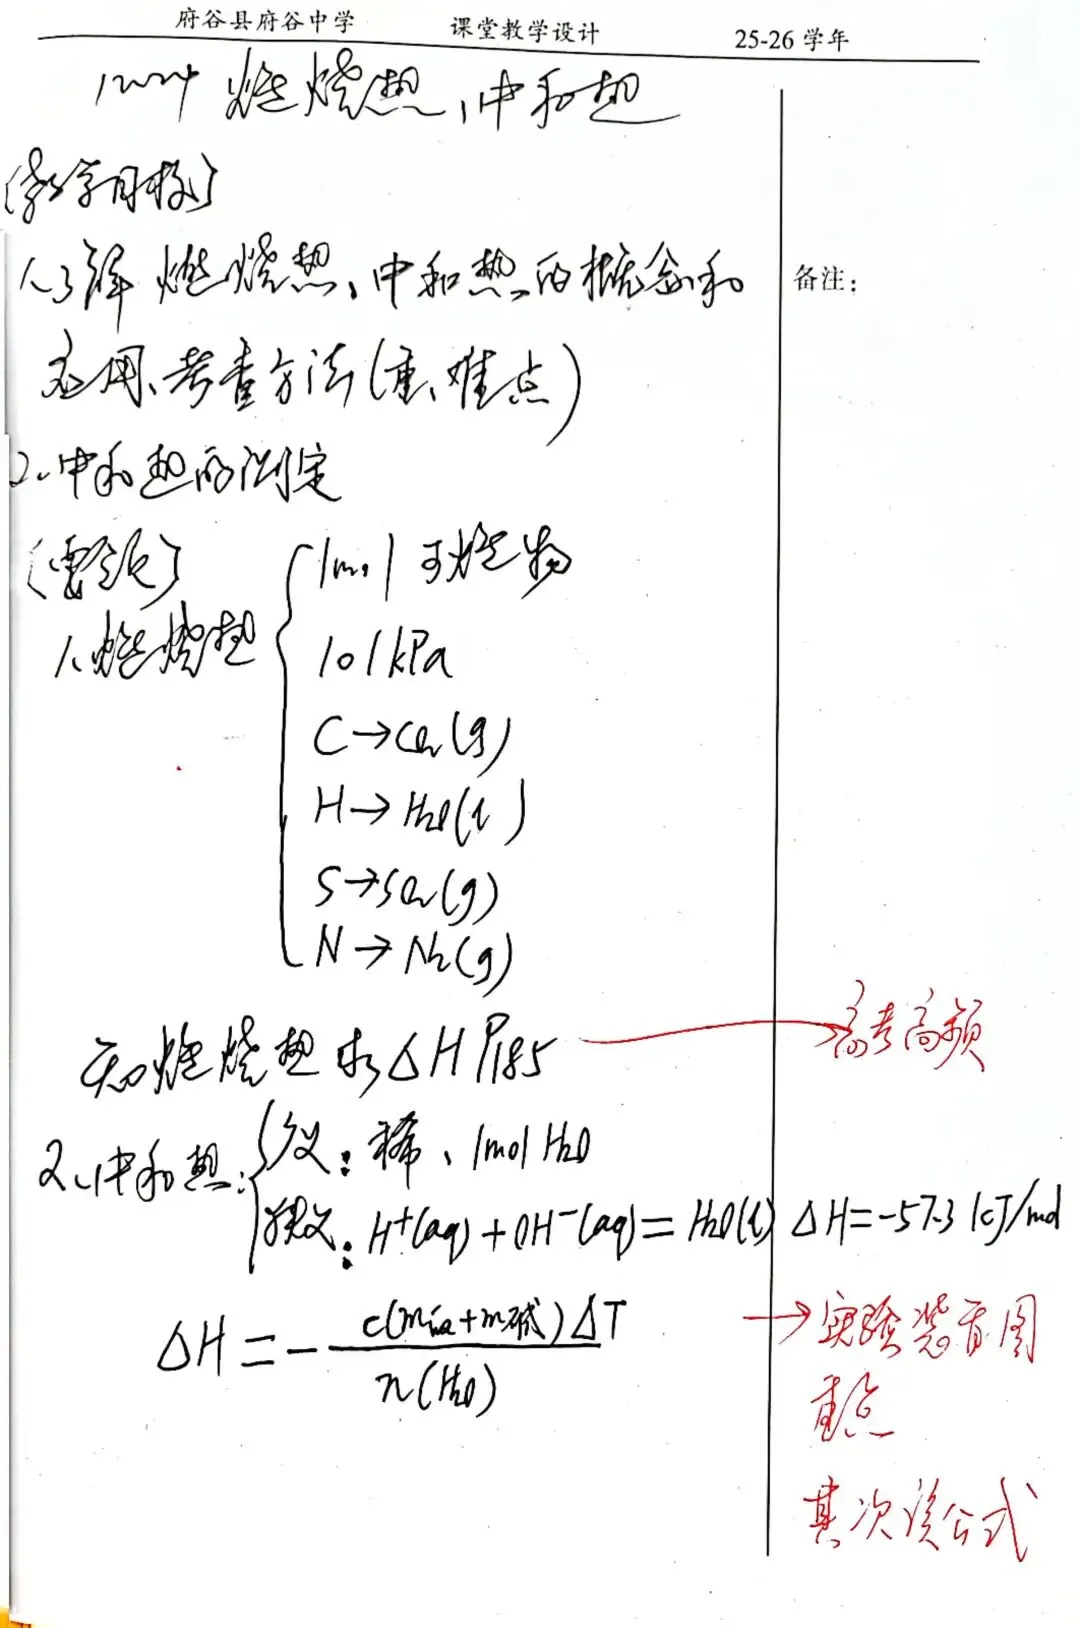 府谷县府谷中学 课堂教学设计 25-26 学年
燃烧热、中和热
[教学目标]
1.了解燃烧热、中和热的概念和
应用、考查方法(重、难点)
2.中和热的测定
备注:
[要点]
1.燃烧热
1mol 可燃物
101kPa
C→CO₂(g)
H→H₂O(l)
S→SO₂(g)
N→N₂(g)
知燃烧热求△H P185
高考高频
2.中和热:
定义:稀、1mol H₂O
H⁺(aq)+OH⁻(aq)=H₂O(l) △H=-57.3 kJ/mol
△H=-c(m酸+m碱)△T/n(H₂O)
→实验装置图
重点
其次该公式